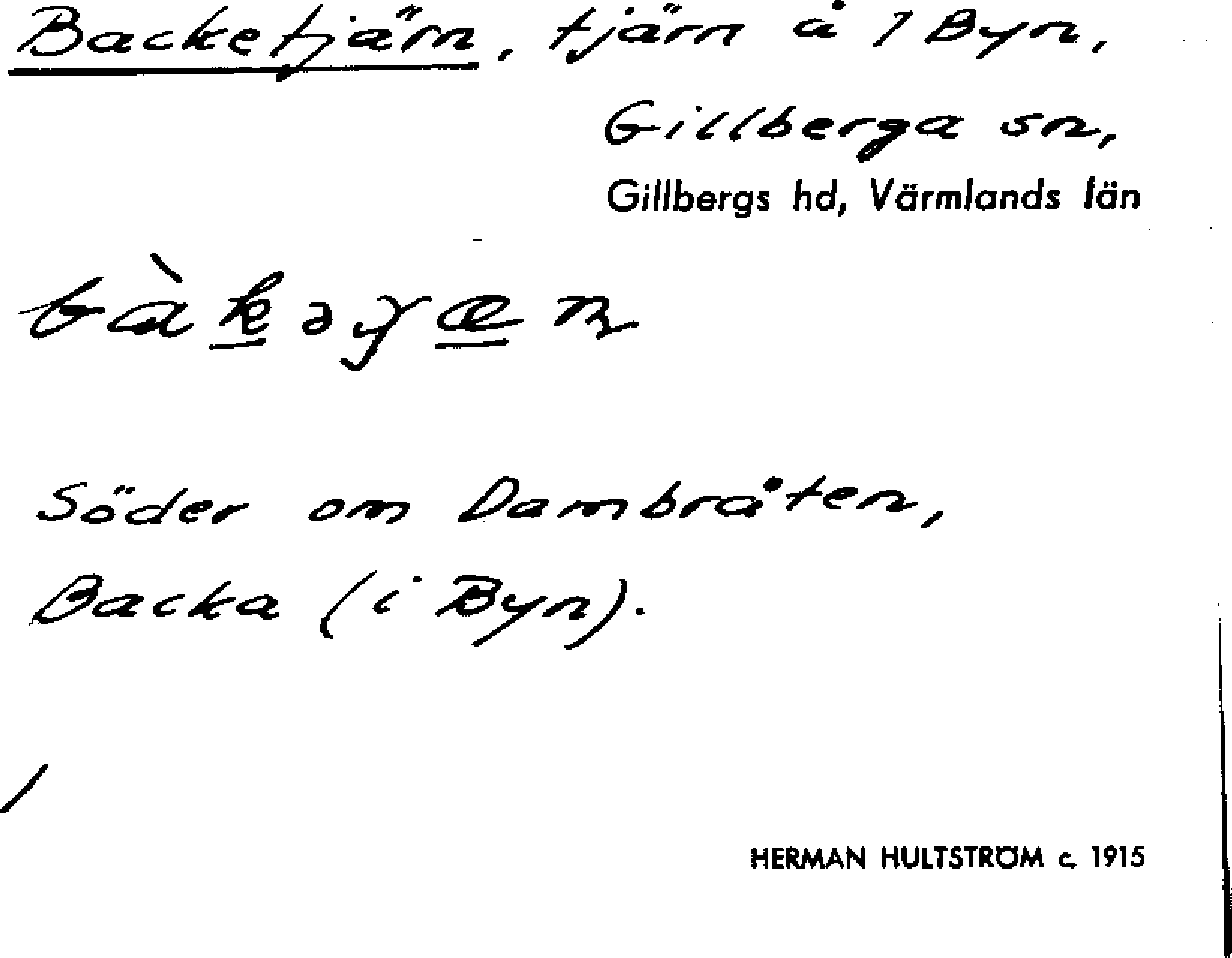 Backetjärn, tjärn å 1 Byn,
Gillberga sn,
Gillbergs hd, Värmlands län
Söder om Dambråten,
Backa (i Byn).
HERMAN HULTSTRÖM c. 1915